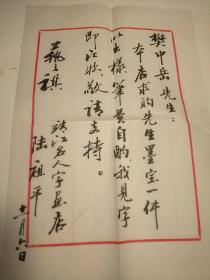 樊中岳先生：
本店求购先生墨宝一件
以出样笔费自酌，我见字
即比收，敬请支持。
靖江名人字画店
陆祖平
十一月六日